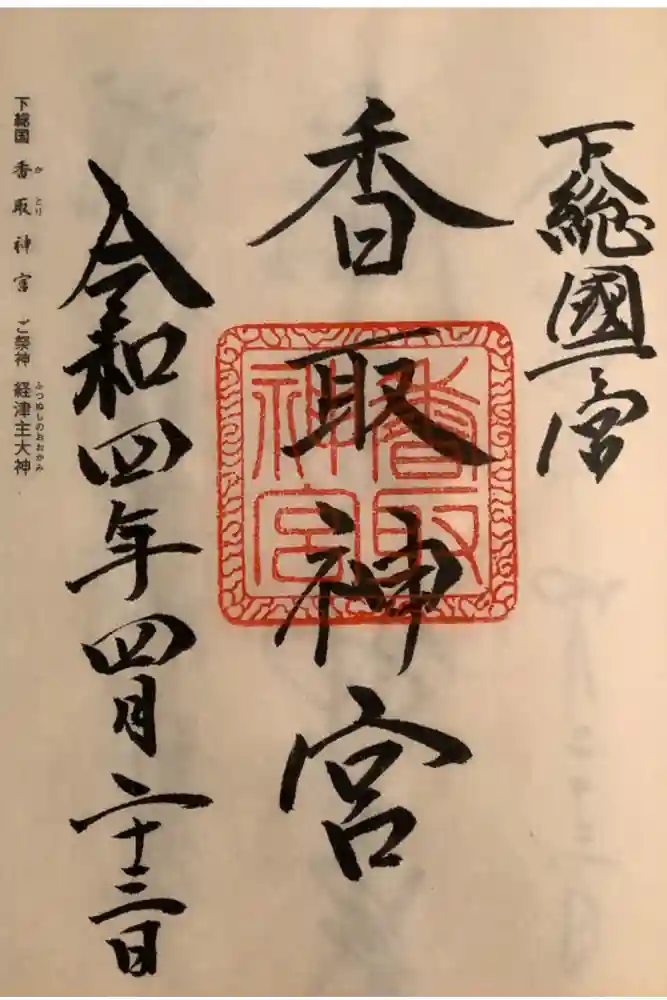 下総國一宮
香取神宮
香取神宮
令和四年四月二十三日
下総国 香取神宮 ご祭神 経津主大神
かとり ふつぬしのおおかみ